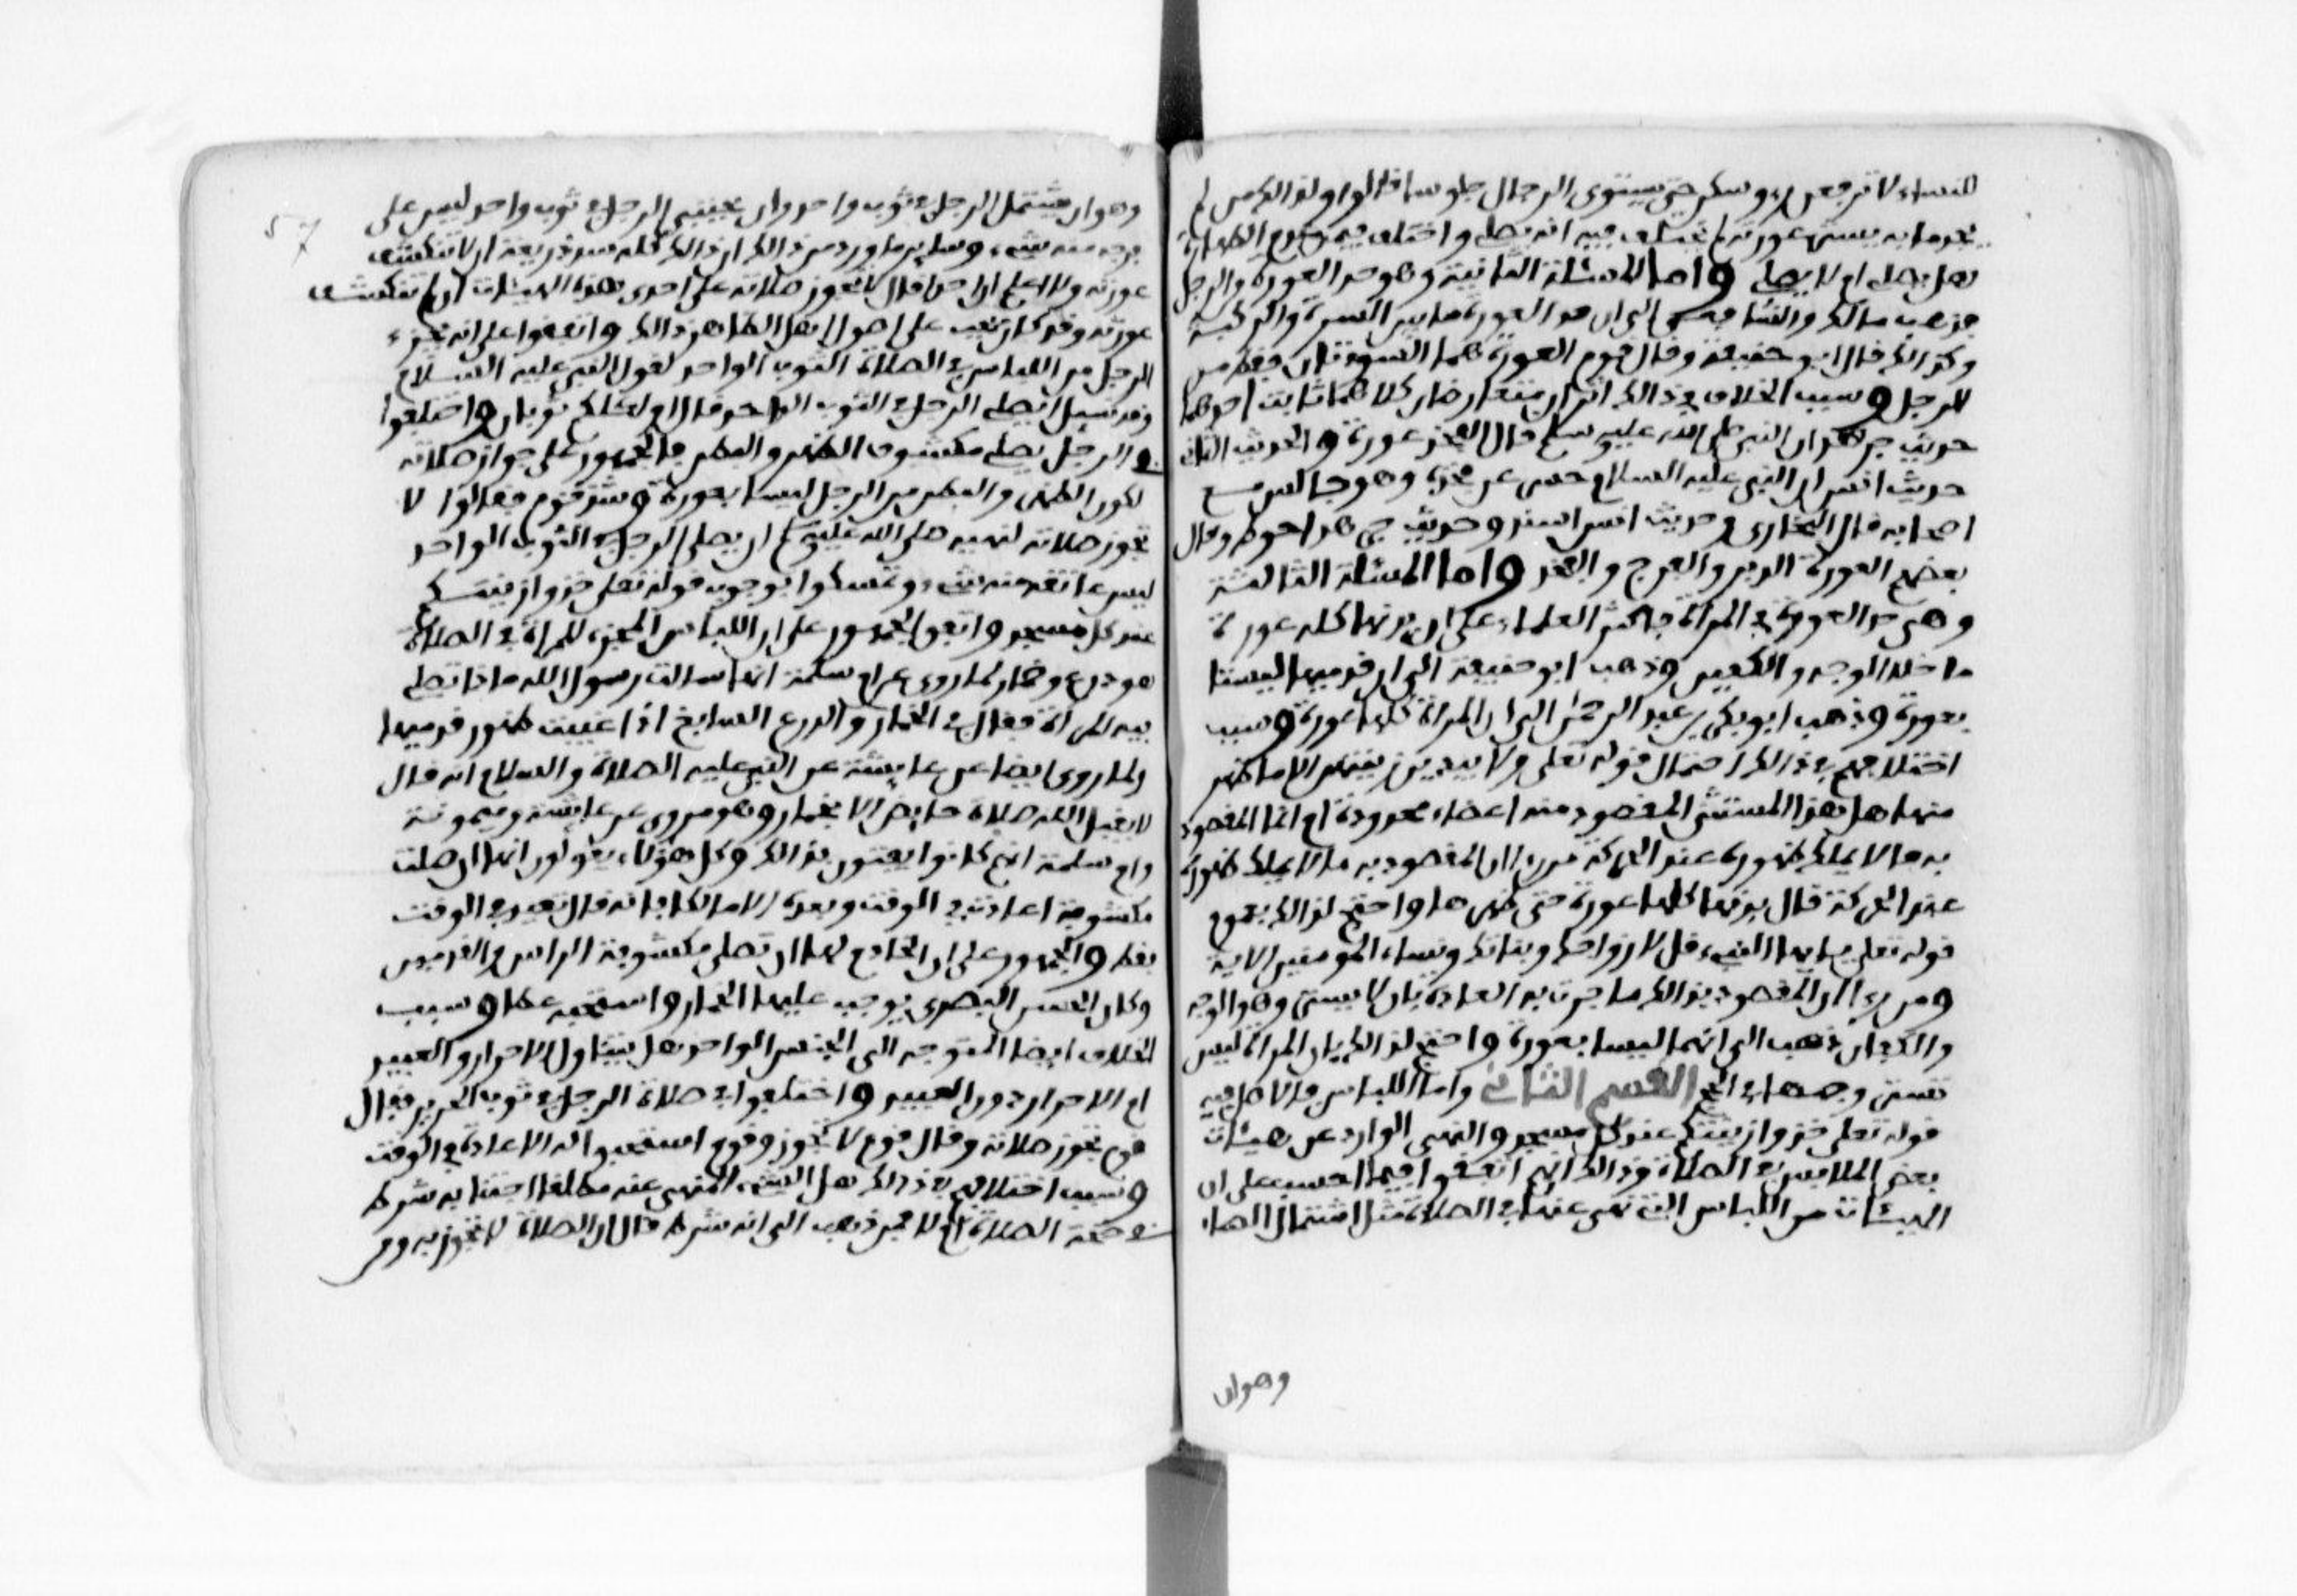 للنساء لا ترفعن رءوسكن حتى يستوى الرجال جلوسا قالوا ولذالك من لم
يجد ما به يستر عورته لم يختلف فيه انه يصلى واختلف فيه عدم الطهارة
هل يصلى ام لا يصلى واما المسئلة الثانية وهو حد العورة من الرجل
فذهب مالك والشافعي الى ان حد العورة ما بين السرة والركبة
وكذالك قال ابو حنيفة وقال قوم العورة هما السوءتان فقط من
الرجل وسبب الخلاف في ذالك اثران متعارضان كلاهما ثابت احدهما
حديث جرهد ان النبي صلى الله عليه وسلم قال الفخذ عورة والحديث الثاني
حديث انس ان النبي عليه السلام حسر عن فخذه وهو جالس مع
اصحابه قال البخاري وحديث انس اسند وحديث جرهد احوط وقال
بعضهم العورة الدبر والفرج والفخذ واما المسئلة الثالثة
وهي حد العورة في المراة فاكثر العلماء على ان بدنها كله عورة
ما خلا الوجه والكفين وذهب ابو حنيفة الى ان قدميها ليستا
بعورة وذهب ابو بكر بن عبد الرحمن الى ان المراة كلها عورة وسبب
اختلافهم في ذالك احتمال قوله تعلى ولا يبدين زينتهن الا ما ظهر
منها هل هذا المستثنى المقصود منه اعضاء محدودة ام انما المقصود
به ما لا يملك ظهوره عند الحركة فمن راا ان المقصود به ما لا يملك ظهوره
عند الحركة قال بدنها كلها عورة حتى ظهرها واحتج لذالك بعموم
قوله تعلى يا ايها النبيء قل لازواجك وبناتك ونساء المومنين الاية
ومن راا ان المقصود بذالك ما جرت به العادة بان لا يستر وهو الوجه
والكفان ذهب الى انهما ليسا بعورة واحتج لذالك بان المراة ليس
تستر وجهها في الحج القسم الثاني واما اللباس فالاصل فيه
قوله تعلى خذوا زينتكم عند كل مسجد والنهي الوارد عن هيئات
بعض الملابس في الصلاة وذالك انهم اتفقوا فيما احسب على ان
الهيئات من اللباس التي نهي عنها في الصلاة مثل اشتمال الصماء
وهوان
57
وهو ان يشتمل الرجل في ثوب واحد وان يحتبي الرجل في ثوب واحد ليس على
فرجه منه شيء وساير ما ورد من ذالك ان ذالك كله سد ذريعة ان لا تنكشف
عورته ولا اعلم ان احدا قال لا تجوز صلاته على احدى هذه الهيئات ان لم تنكشف
عورته وقد كان يجب على اصول اهل الظاهر ذالك واتفقوا على انه يجزء
الرجل من اللباس في الصلاة الثوب الواحد لقول النبي عليه السلام
وقد سيل ايصلي الرجل في الثوب الواحد فقال او لكلكم ثوبان واختلفوا
في الرجل يصلي مكشوف الظهر والبطن فالجمهور على جواز صلاته
لكون الظهر والبطن من الرجل ليسا بعورة وشذ قوم فقالوا لا
تجوز صلاته لنهيه صلى الله عليه وسلم ان يصلي الرجل في الثوب الواحد
ليس على عاتقه منه شيء وتمسكوا بوجوب قوله تعلى خذوا زينتكم
عند كل مسجد واتفق الجمهور على ان اللباس المجزء للمراة في الصلاة
هو درع وخمار لما روي عن ام سلمة انها سالت رسول الله ماذا تصلي
فيه المراة فقال في الخمار والدرع السابغ اذا غيبت ظهور قدميها
ولما روى ايضا عن عايشة عن النبي عليه الصلاة والسلام انه قال
لا يقبل الله صلاة حايض الا بخمار وهو مروى عن عايشة وميمونة
وام سلمة انهم كانوا يفتون بذالك وكل هؤلاء يقولون انها ان صلت
مكشوفة اعادت في الوقت وبعده الا مالكا فانه قال تعيد في الوقت
فقط والجمهور على ان الخادم لها ان تصلي مكشوفة الراس والقدمين
وكان الحسن البصري يوجب عليها الخمار واستحبه عطا وسبب
الخلاف ايضا المتوجه الى الجنس الواحد هل يتناول الاحرار والعبيد
ام الاحرار دون العبيد واختلفوا في صلاة الرجل في ثوب الحرير فقال
قوم تجوز صلاته وقال قوم لا تجوز وقوم استحبوا له الاعادة في الوقت
وسبب اختلافهم في ذالك هل الشيء المنهي عنه مطلقا اجتنابه شرط
في صحة الصلاة ام لا فمن ذهب الى انه شرط قال ان الصلاة لا تجوز به ومن